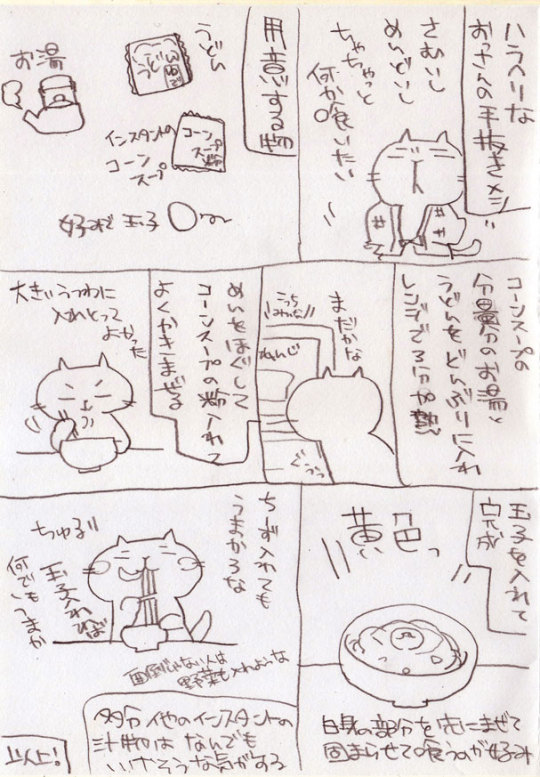 ハラヘリな
おっさんの手抜きメシ
さむいし
めんどいし
ちゃちゃっと
何か喰いたい
用意する物
うどん
うどん
お湯
インスタントの
コーン
スープ
コーン
スープ
粉
好みで 玉子
コーンスープの
分量分のお湯と
うどんをどんぶりに入れ
レンジで3分加熱
まだかな
こっち
みんな!!
れんじ
ぐぅぅ
めんをほぐして
コーンスープの粉入れて
よくかきまぜる
大きいうつわに
入れとって
よかった
玉子を入れて
完成
黄色っ
白身の部分を先にまぜて
固まらせて喰うのが好み
ちず入れても
うまかろな
ちゅる!!
玉子入れれば
何でもうまか
面倒じゃない人は
野菜も入れような
多分他のインスタントの
汁物はなんでも
いけそうな気がする
以上!